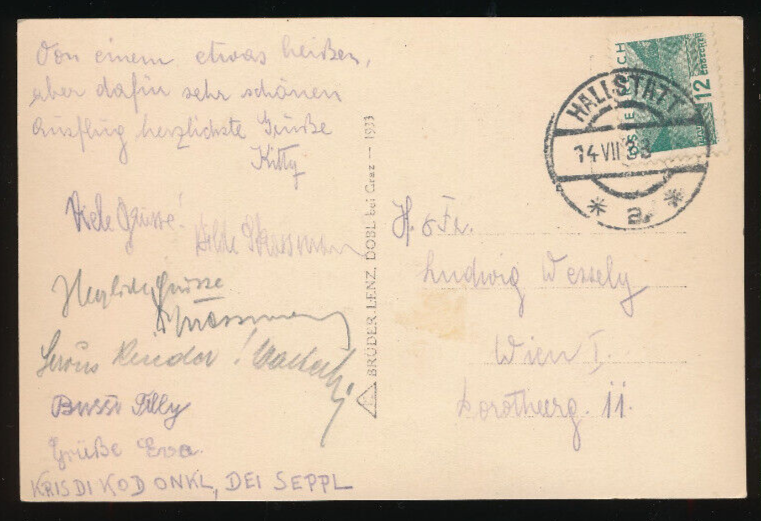 Von einem etwas heißen,
aber dafür sehr schönen
Ausflug herzlichste Grüße
Kitty
Viele Grüsse!
Hilde Strassmann
Herzliche Grüsse
Strassmann
Servus Kinder!
Bussi Tilly
Grüße Eva.
KRISDI KOD ONKL, DEI SEPPL
BRÜDER LENZ, DOBL bei Graz — 1933
HALLSTATT
14 VII 33
* a. *
12
H. & Fr.
Ludwig Wessely
Wien I.
Dorotheerg. 11.